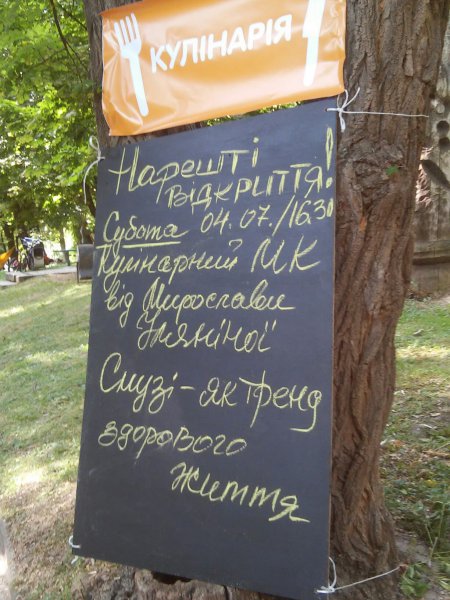 КУЛІНАРІЯ
Нарешті
відкриття!
Субота 04.07./16.30
Кулінарний МК
від Мирослави
Смузі – як тренд
здорового
життя